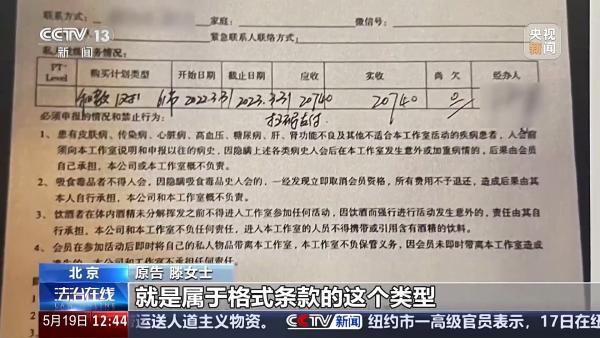 CCTV 13
新闻
央视新闻
联系方式:
家庭:
微信号:
紧急联系人联络方式:
务情况:
PT-Level
购买计划类型
开始日期
截止日期
应收
实收
尚 欠
经办人
2022.3.31
2023.3.31
20740
20740
0
扫码支付
必须申报的情况和禁止行为:
1、患有皮肤病、传染病、心脏病、高血压、糖尿病、肝、肾功能不良及其他不适合本工作室活动的疾病患者,入会前
须向本工作室说明和申报以往的病史,因隐瞒上述各类病史入会后在本工作室发生意外或加重病情的,后果由会员
自己承担,本公司或本工作室概不负责。
2、吸食毒品者不得入会,因隐瞒吸食毒品史入会的,一经发现立即取消会员资格,所有费用不予退还,造成后果由其
本人自行承担,本公司和本工作室概不负责。
3、饮酒者在体内酒精未分解挥发之前不得进入工作室参加任何活动,因饮酒而强行进行活动发生意外的,责任由其自
行承担,本公司和本工作室不负任何责任,进入本工作室的人员不得携带或引用含有酒精的饮料。
4、会员在参加活动后即时将自己的私人物品带离本工作室,本工作室不负保管义务,因会员未即时带离本工作室造成
北京
原告 滕女士
法治在线
就是属于格式条款的这个类型
5月19日 12:44
运送人道主义物资。
CCTV 新闻
纽约市一高级官员表示,17日在纽